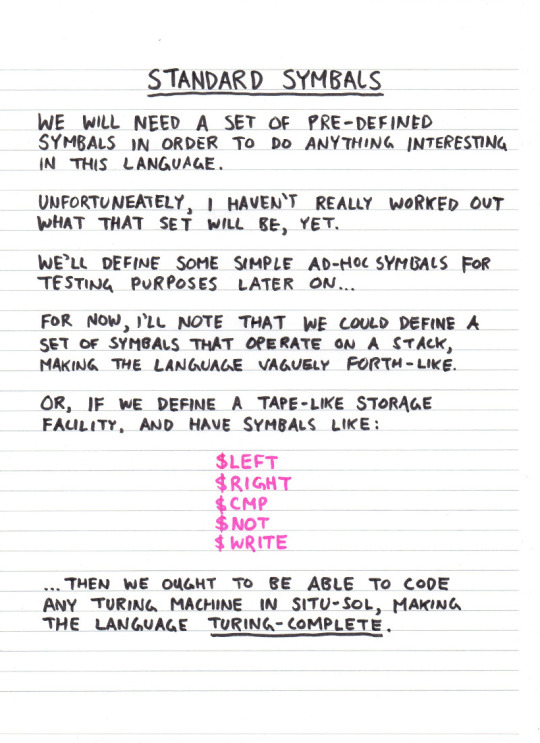 STANDARD SYMBALS
WE WILL NEED A SET OF PRE-DEFINED
SYMBALS IN ORDER TO DO ANYTHING INTERESTING
IN THIS LANGUAGE.
UNFORTUNEATELY, I HAVEN'T REALLY WORKED OUT
WHAT THAT SET WILL BE, YET.
WE'LL DEFINE SOME SIMPLE AD-HOC SYMBALS FOR
TESTING PURPOSES LATER ON...
FOR NOW, I'LL NOTE THAT WE COULD DEFINE A
SET OF SYMBALS THAT OPERATE ON A STACK,
MAKING THE LANGUAGE VAGUELY FORTH-LIKE.
OR, IF WE DEFINE A TAPE-LIKE STORAGE
FACILITY, AND HAVE SYMBALS LIKE:
$LEFT
$RIGHT
$CMP
$NOT
$WRITE
...THEN WE OUGHT TO BE ABLE TO CODE
ANY TURING MACHINE IN SITU-SOL, MAKING
THE LANGUAGE TURING-COMPLETE.